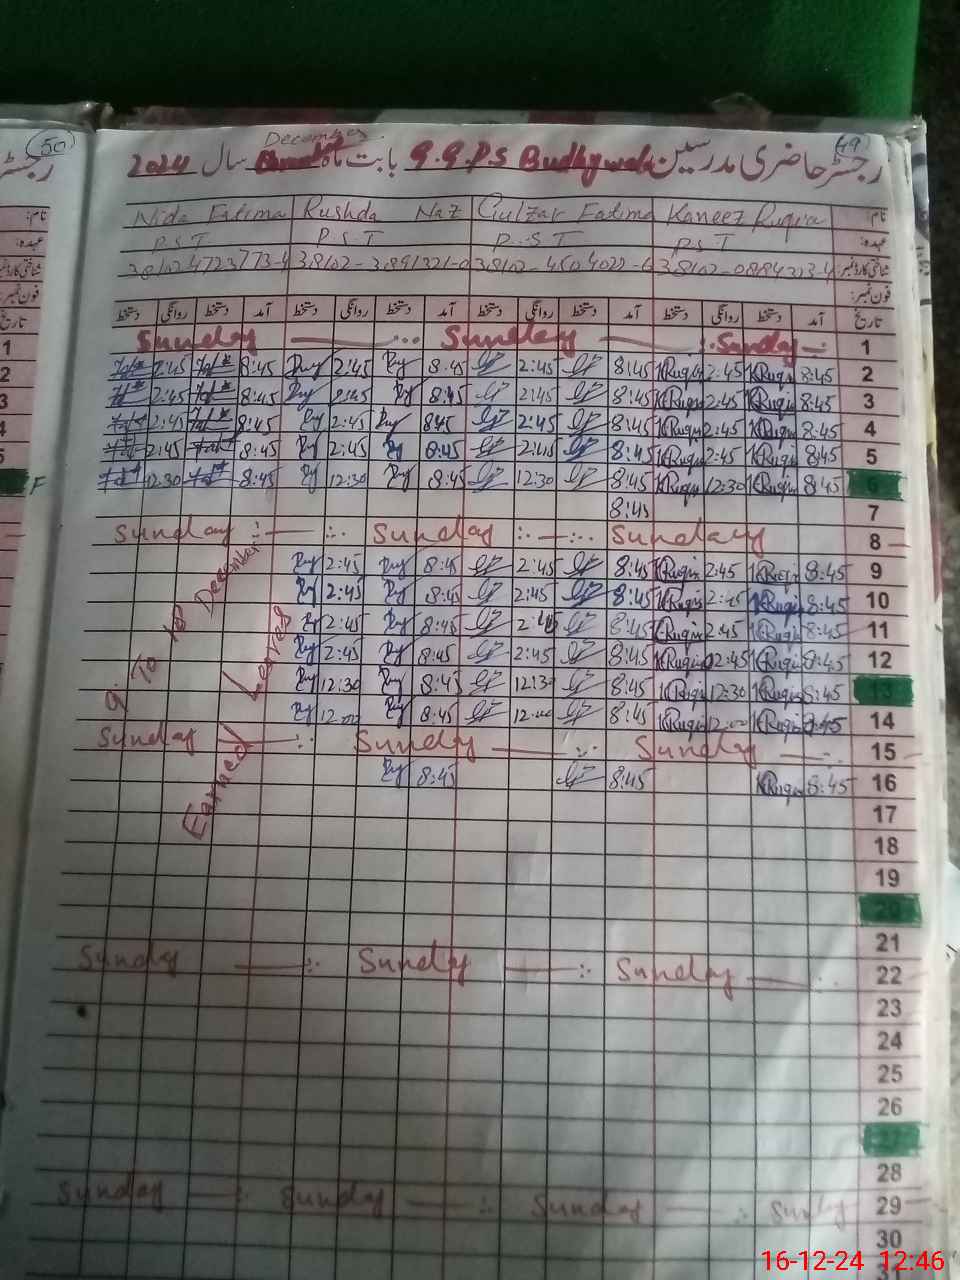 50
49
December
رجسٹر حاضری مدرسین G.G.P.S Budhywala بابت ماہ سال 2024
نام: Nida Fatima Rushda Naz Gulzar Fatima Kaneez Ruqia
عہدہ: P.S.T P.S.T P.S.T PST
شناختی کارڈ نمبر 38102 4723773-4 38102-3891321-0 38102-4504022-6 38102-0884223-4
فون نمبر:
تاریخ آمد دستخط روانگی دستخط آمد دستخط روانگی دستخط آمد دستخط روانگی دستخط آمد دستخط روانگی دستخط
Sunday Sunday Sunday 1
2:45 8:45 2:45 8:45 2:45 8:45 KRuqia 2:45 KRuqia 8:45 2
2:45 8:45 2:45 8:45 2:45 8:45 KRuqia 2:45 KRuqia 8:45 3
2:45 8:45 2:45 845 2:45 8:45 KRuqia 2:45 KRuqia 8:45 4
2:45 8:45 2:45 8:45 2:45 8:45 KRuqia 2:45 KRuqia 8:45 5
F 12:30 8:45 12:30 8:45 12:30 8:45 KRuqia 12:30 KRuqia 8:45 6
8:45 7
Sunday Sunday Sunday 8
2:45 8:45 2:45 8:45 KRuqia 2:45 KRuqia 8:45 9
2:45 8:45 2:45 8:45 KRuqia 2:45 KRuqia 8:45 10
2:45 8:45 2:45 8:45 KRuqia 2:45 KRuqia 8:45 11
2:45 8:45 2:45 8:45 KRuqia 2:45 KRuqia 8:45 12
12:30 8:45 12:30 8:45 KRuqia 12:30 KRuqia 8:45 13
12:00 8:45 12:00 8:45 KRuqia 12:00 KRuqia 8:45 14
9 To 18 December
Earned Leaves
Sunday Sunday Sunday 15
8:45 8:45 KRuqia 8:45 16
17
18
19
20
21
Sunday Sunday Sunday 22
23
24
25
26
27
28
Sunday Sunday Sunday Sunday 29
30
16-12-24 12:46